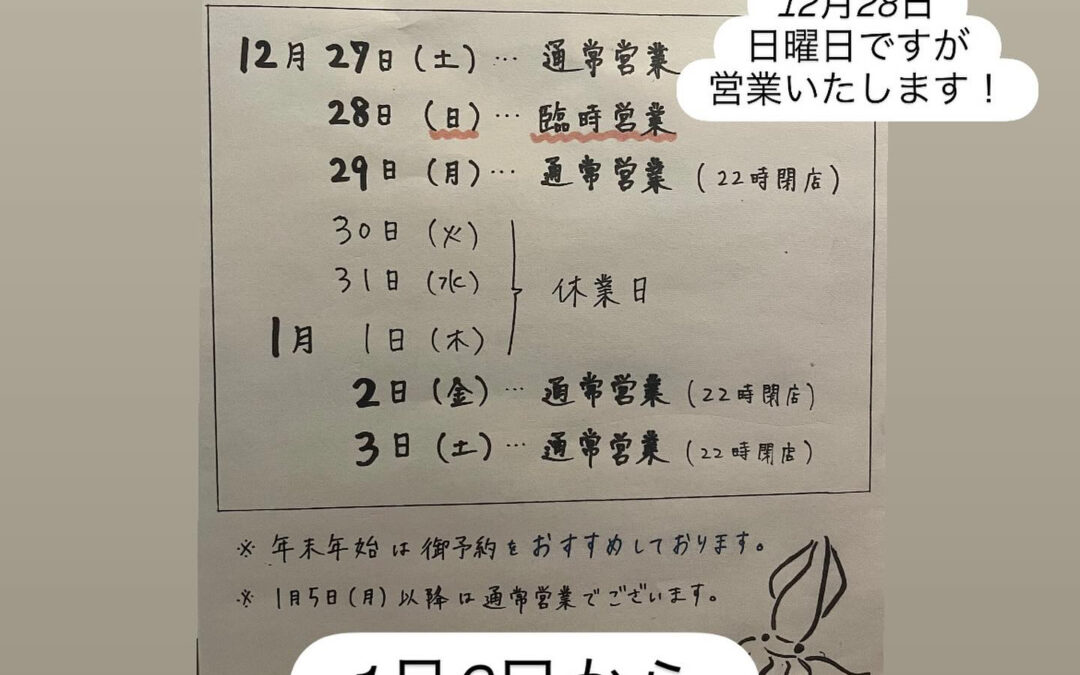 12月28日
日曜日ですが
営業いたします！
12月 27日（土）… 通常営業
28日（日）… 臨時営業
29日（月）… 通常営業（22時閉店）
30日（火）
31日（水）
休業日
1月 1日（木）
2日（金）… 通常営業（22時閉店）
3日（土）… 通常営業（22時閉店）
※ 年末年始は御予約をおすすめしております。
※ 1月5日（月）以降は通常営業でございます。